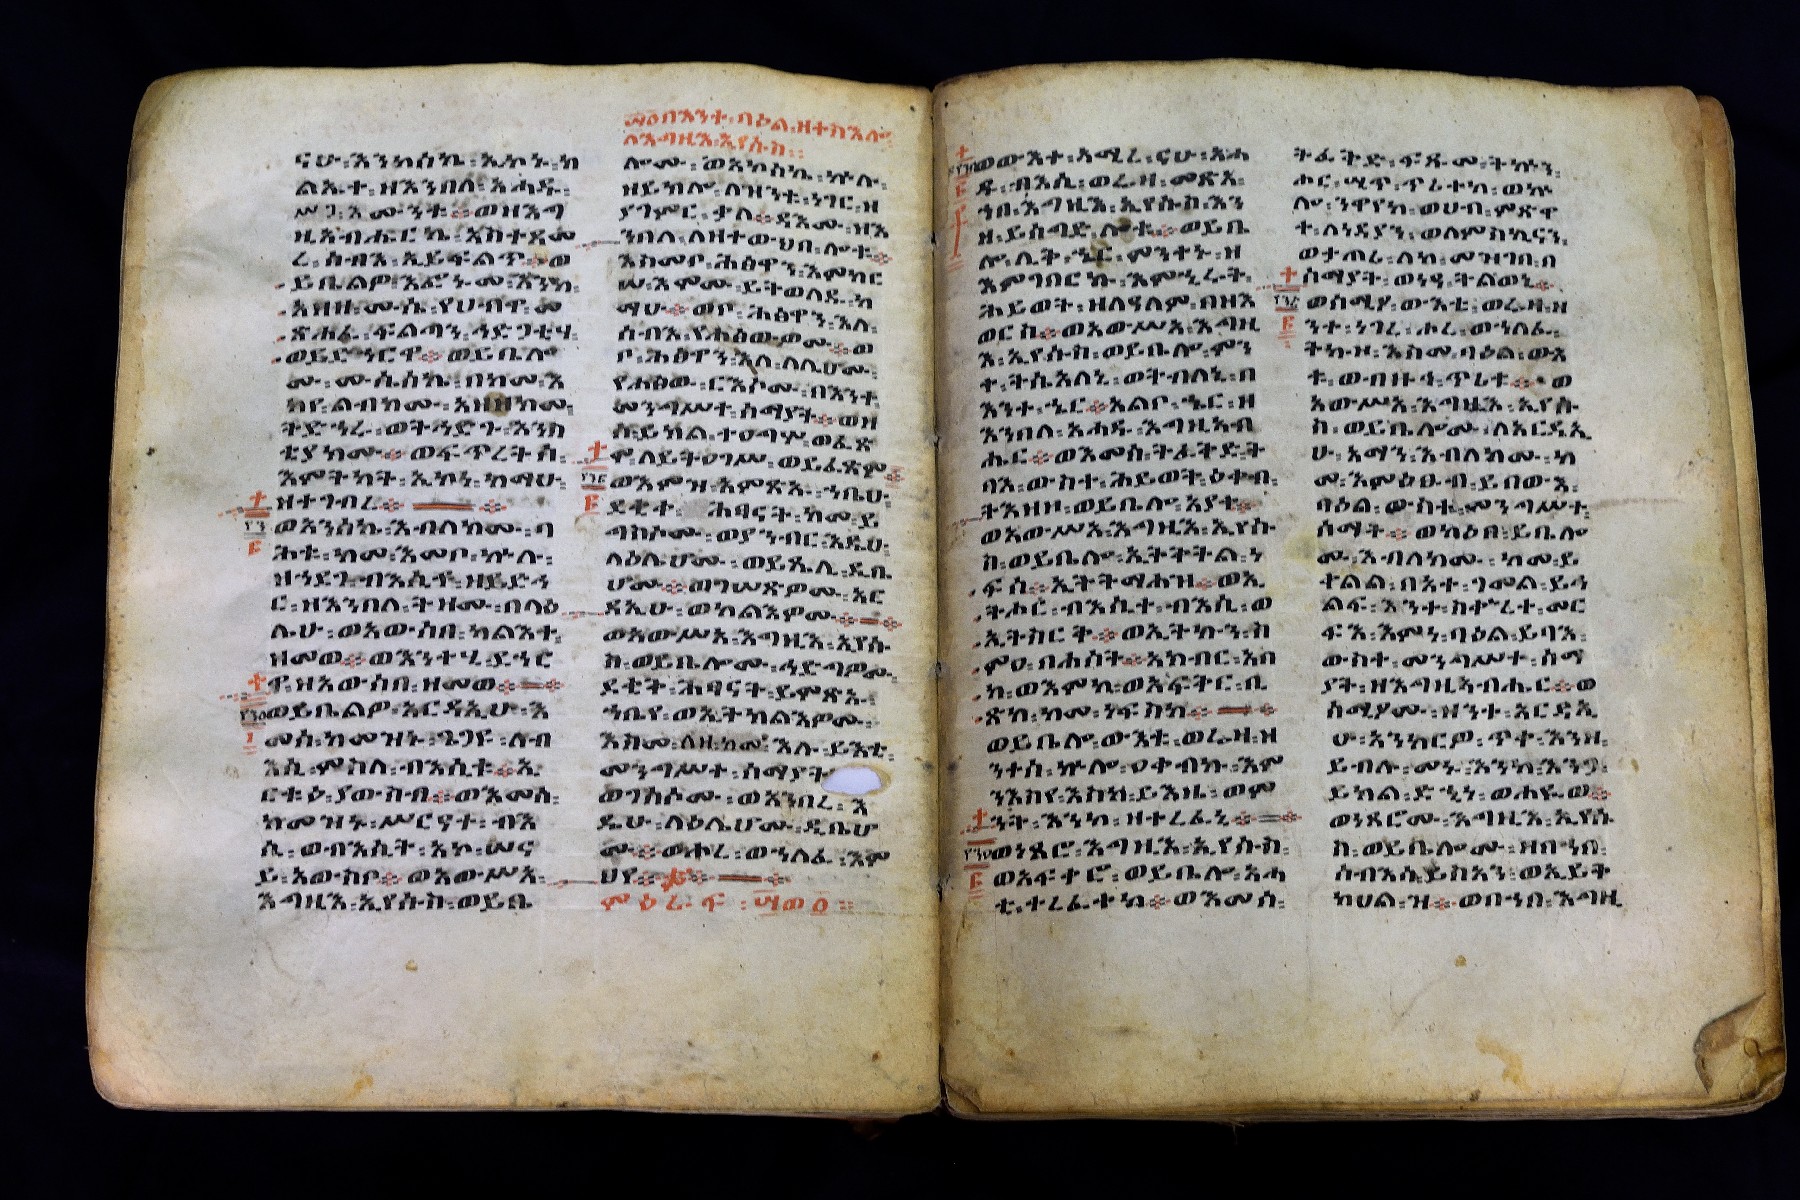 ናሁ፡እንከሰኬ፡ኢኮኑ፡ክ
ልኤተ፡ዘእንበለ፡አሐዱ፡
ሥጋ፡እሙንቱ፨ወዘእግ
ዚአብሔርኬ፡አስተደመ
ረ፡ሰብእ፡ኢይፍልጥ፨ወ
ይቤልዎ፡እፎኑመ፡እንከ፡
አዘዘ፡ሙሴ፡የሀብዋ፡መ
ጽሐፈ፡ፍልጣን፡ኀድጋቲሃ፡
ወይድኀርዋ፨ወይቤሎ
ሙ፡ሙሴሰኬ፡በከመ፡እ
ከየ፡ልብክሙ፡አዘዘክሙ፡
ትድኀሩ፡ወትኅድጉ፡አንስ
ቲያክሙ፨ወፍጥረትሰ፡
እምትካት፡ኢኮነ፡ከማሁ፡
ዘተገብረ፨
ወአንሰኬ፡እብለክሙ፡ባ
ሕቱ፡ከመ፡እመቦ፡ኵሉ፡
ዘኀደገ፡ብእሲቶ፡ዘይድኅ
ር፡ዘእንበለ፡ትዘሙ፡በላዕ
ሌሁ፡ወአውሰበ፡ካልእተ፡
ዘመወ፨ወእንተሂ፡ድኅር
ተ፡ዘአውሰበ፡ዘመወ፨
ወይቤልዎ፡አርዳኢሁ፡እ
መሰ፡ከመዝኑ፡ጌጋዩ፡ለብ
እሲ፡ምስለ፡ብእሲቱ፨ኢ
ርቱዕ፡ያውስብ፨ወእመሰ፡
ከመዝኑ፡ሥርዓተ፡ብእ
ሲ፡ወብእሲት፡አኮ፡ሠና
ይ፡አውስቦ፨ወአውሥአ፡
እግዚእ፡ኢየሱስ፡ወይቤ
በእንተ፡ባዕል፡ዘተስእሎ
ለእግዚእ፡ኢየሱስ፡
ሎሙ፡ወአኮሰኬ፡ኵሉ፡
ዘይክሎ፡ለዝንቱ፡ነገር፡ዘ
ያገምር፡ቃለ፨ዳእሙ፡ዘእ
ንበለ፡ለዘተውህበ፡ሎቱ፨
እስመቦ፡ሕፅዋን፡እምከር
ሠ፡እሞሙ፡ይትወለዱ፡ከ
ማሁ፨ወቦ፡ሕፅዋን፡እለ፡
ሰብእ፡የሐፅውዎሙ፨ወ
ቦ፡ሕፅዋን፡እለ፡ለሊሆሙ፡
የሐፅው፡ርእሶሙ፡በእንተ፡
መንግሥተ፡ሰማያት፨ወዘ
ሰ፡ይክል፡ተዐግሦ፡ወፈጽ
ሞ፡ለይትዐገሥ፡ወይፈጽም፨
ወእምዝ፡አምጽኡ፡ኀቤሁ፡
ደቂቀ፡ሕፃናት፡ከመ፡ይ
ግስሶሙ፡ወያንብር፡እዴሁ፡
ላዕሌሆሙ፡ወይጼሊ፡ዲቤ
ሆሙ፨ወገሠጽዎሙ፡አር
ዳኢሁ፡ወከልእዎሙ፨
ወአውሥአ፡እግዚእ፡ኢየሱ
ስ፡ወይቤሎሙ፡ኅድግዎሙ፡
ደቂቀ፡ሕፃናት፡ይምጽኡ፡
ኀቤየ፡ወኢትክልእዎሙ፡
እስመ፡ለዘከመ፡እሉ፡ይእቲ፡
መንግሥተ፡ሰማያት
ወገሰሶሙ፡ወአንበረ፡እ
ዴሁ፡ላዕሌሆሙ፡ዲቤሆ
ሙ፨ወሖረ፡ወኀለፈ፡እም
ህየ፨
ምዕራፍ፡
ወውእተ፡አሚረ፡ናሁ፡አሐ
ዱ፡ብእሲ፡ወሬዛ፡መጽአ፡
ኀበ፡እግዚእ፡ኢየሱስ፡እን
ዘ፡ይሰግድ፡ሎቱ፨ወይቤ
ሎ፡ሊቅ፡ኄር፡ምንተኑ፡ዘ
እምገበርኩ፡እምኄረት፡
ሕይወት፡ዘለዓለም፡በዘእ
ወርስ፨ወአውሥአ፡እግዚ
እ፡ኢየሱስ፡ወይቤሎ፡ምን
ተ፡ትሴአለኒ፡ወትብለኒ፡በ
እንተ፡ኄር፨አልቦ፡ኄር፡ዘ
እንበለ፡አሐዱ፡እግዚአብ
ሔር፨ወእመሰ፡ትፈቅድ፡ት
ባእ፡ውስተ፡ሕይወት፡ዕቀብ፡
ትእዛዘ፡ወይቤሎ፡አያተ፨
ወአውሥአ፡እግዚእ፡ኢየሱ
ስ፡ወይቤሎ፡ኢትቅትል፡ነ
ፍሰ፨ኢትትማሐዝ፨ወኢ
ትሑር፡ብእሲተ፡ብእሲ፡ወ
ኢትስርቅ፨ወኢትኩን፡ስ
ምዐ፡በሐሰት፨አክብር፡አበ
ከ፡ወእምከ፡ወአፍቅር፡ቢ
ጽከ፡ከመ፡ነፍስከ፨
ወይቤሎ፡ውእቱ፡ወሬዛ፡ዘ
ንተሰ፡ኵሎ፡ዐቀብኩ፡እም
ንእስየ፡እስከ፡ይእዜ፡ወም
ንት፡እንከ፡ዘተረፈኒ፨
ወነጸሮ፡እግዚእ፡ኢየሱስ፡
ወአፍቀሮ፡ወይቤሎ፡አሐ
ቲ፡ተረፈተከ፨ወእመሰ፡
ትፈቅድ፡ፍጹመ፡ትኩን፡
ሑር፡ሢጥ፡ጥሪተከ፡ወኵ
ሎ፡ንዋየከ፡ወሀብ፡ምጽዋ
ተ፡ለነዳያን፡ወለምስኪናን፡
ወታጠሪ፡ለከ፡መዝገበ፡በ
ሰማያት፡ወነዓ፡ትልወኒ፨
ወሰሚዖ፡ውእቱ፡ወሬዛ፡ዘ
ንተ፡ነገረ፡ሖረ፡ወኀለፈ፡
ትኩዞ፡እስመ፡ባዕል፡ውእ
ቱ፡ወብዙኅ፡ጥሪቱ፨ወ
አውሥአ፡እግዚእ፡ኢየሱ
ስ፡ወይቤሎሙ፡ለአርዳኢ
ሁ፡አማን፡እብለክሙ፡ከ
መ፡እምዕፁብ፡ይበውእ፡
ባዕል፡ውስተ፡መንግሥተ፡
ሰማት፨ወካዕበ፡ይቤሎ
ሙ፡እብለክሙ፡ከመ፡ይ
ቀልል፡በአተ፡ገመል፡ይኅ
ልፍ፡እንተ፡ስቍረተ፡መር
ፍእ፡እምነ፡ባዕል፡ይባእ፡
ውስተ፡መንግሥተ፡ሰማ
ያት፡ዘእግዚአብሔር፨ወ
ሰሚዖሙ፡ዘንተ፡አርዳኢ
ሁ፡አንከርዎ፡ጥቀ፡እንዘ፡
ይብሉ፡መኑ፡እንከ፡እንጋ፡
ይክል፡ድኂነ፡ወሐዪወ፨
ወነጸሮሙ፡እግዚእ፡ኢየሱ
ስ፡ወይቤሎሙ፡ዘበኀበ፡
ሰብእሰ፡ይስአን፡ወኢይት
ከሀል፡ዝ፨ወበኀበ፡እግዚ